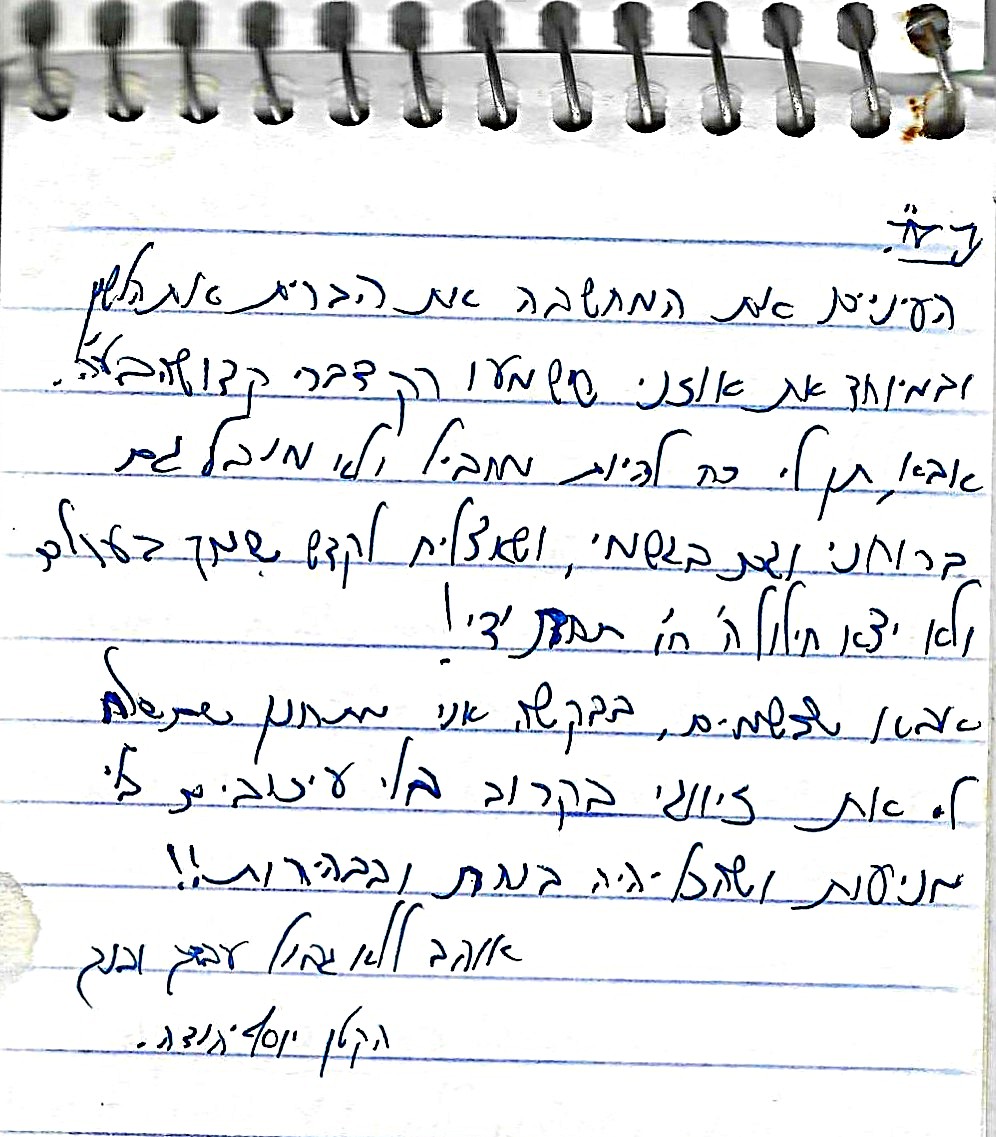 בס"ד
העינים את המחשבה את הברית את הלשון
ובמיוחד את אוזני ששמעו רק דברי קדושה בע"ה.
אבא, תן לי כח להיות מגביל ולא מוגבל גם
ברוחני וגם בגשמי, ושאצליח לקדש שמך בעולם
ולא יצא חילול ה' ח"ו תחת ידי!
אבא שבשמים, בבקשה אני מתחנן שתשלח
לי את זיווגי בקרוב בלי עיכובים בלי
מניעות ושהכל יהיה בנחת ובבהירות!!
אוהב ללא גבול עבדך ובנך
הקטן יוסף יהודה.